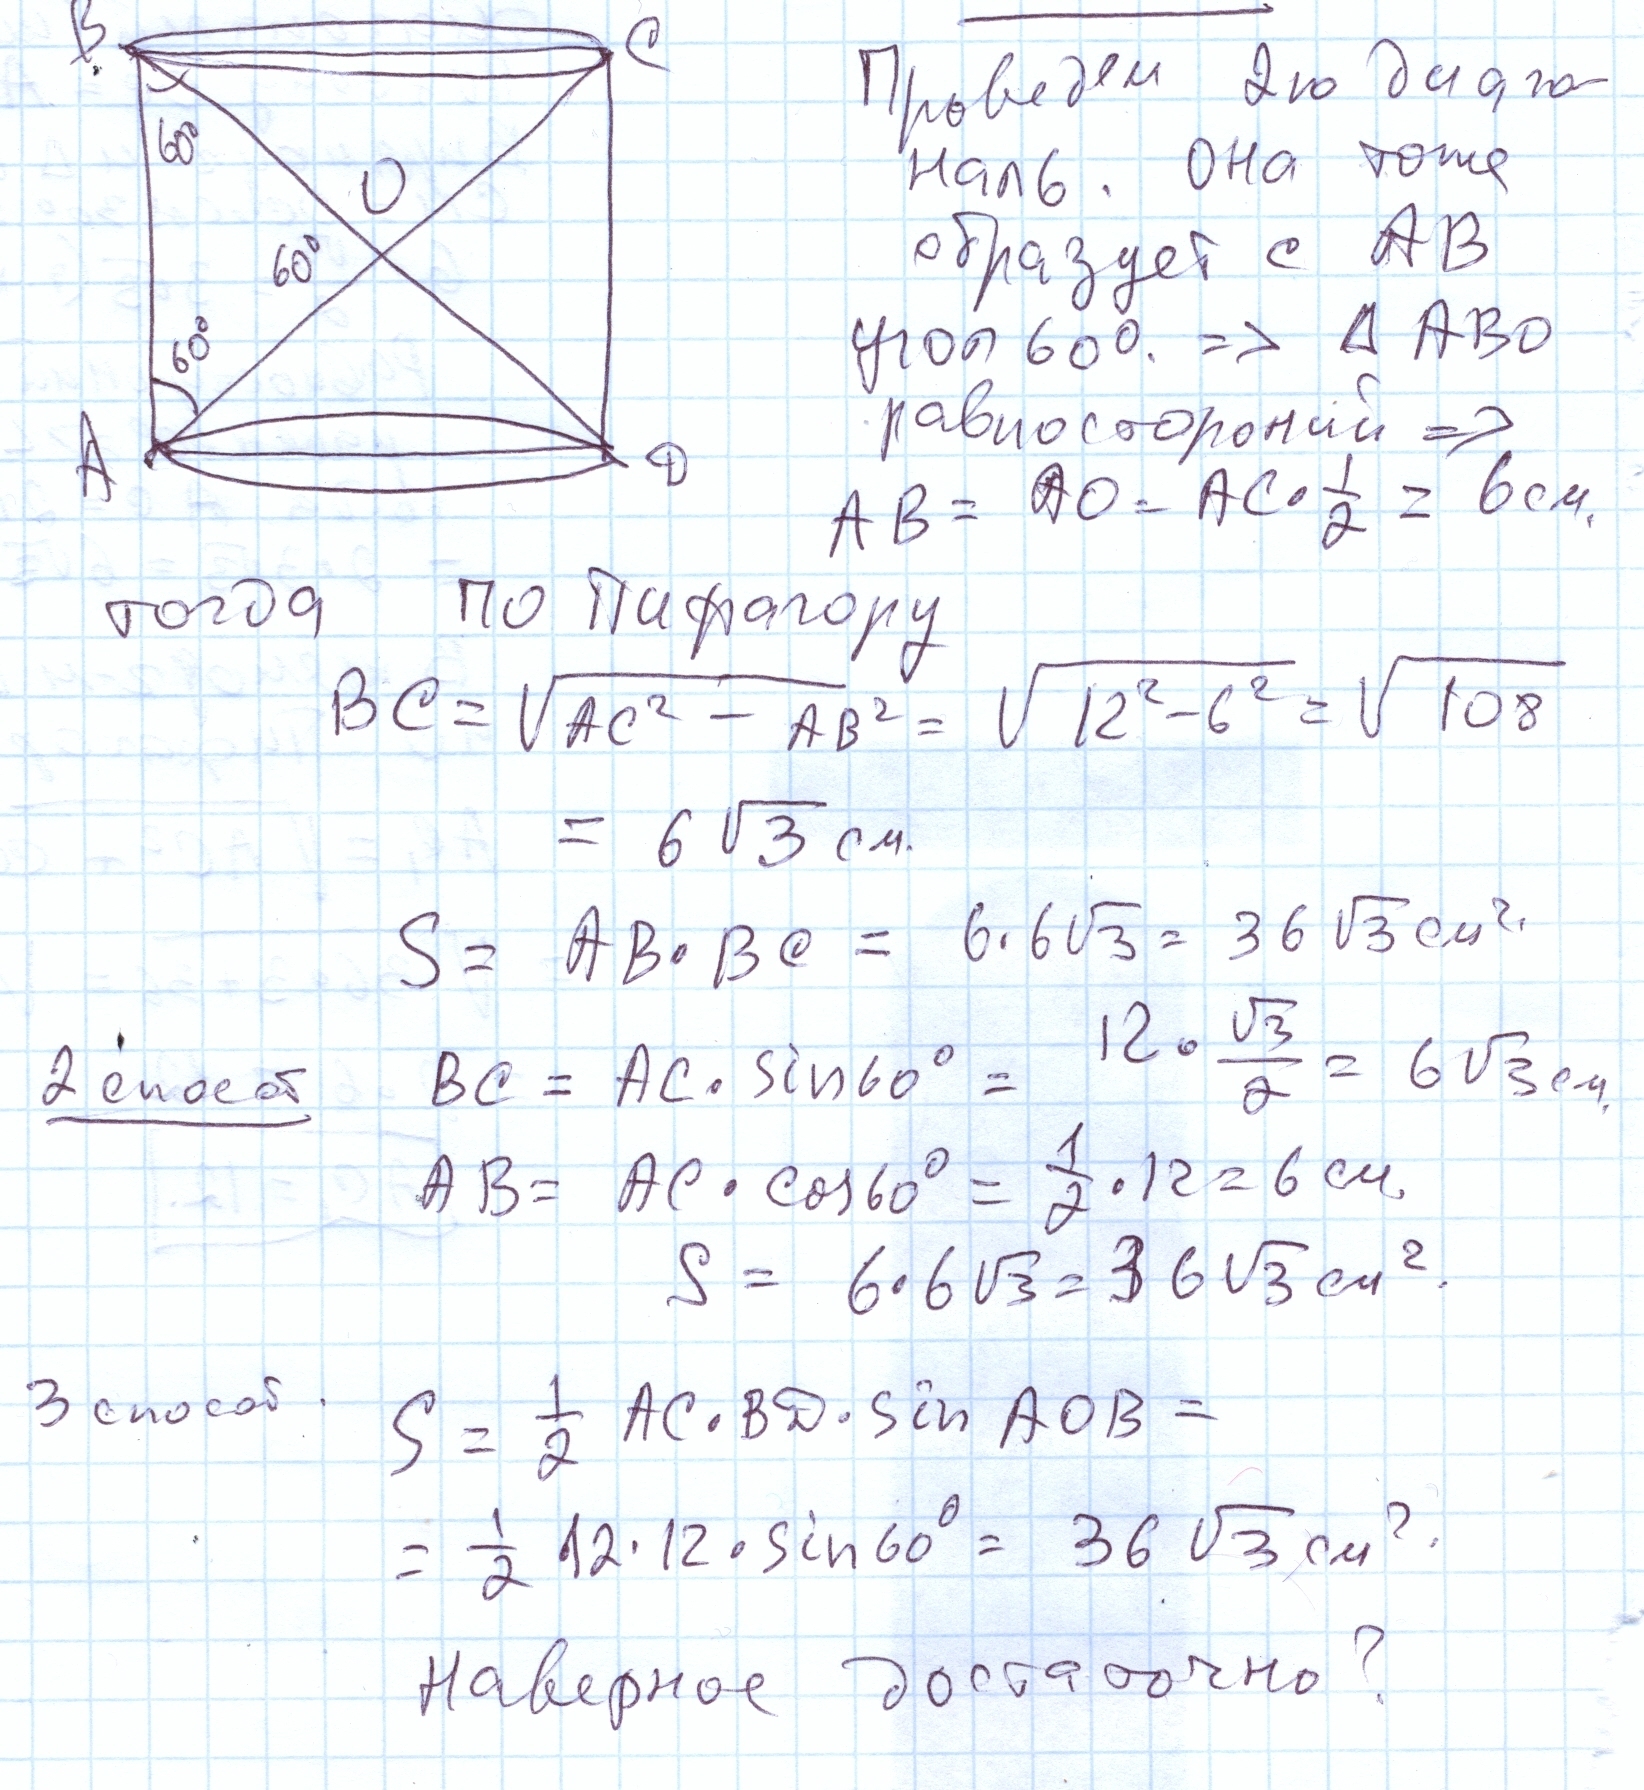 B
C
60°
O
60°
60°
A
D
Проведем 2ю диаго-
наль. Она тоже
образует с AB
угол 60°. => Δ ABO
равносторонний =>
AB = AO = AC · 1/2 = 6 см.
тогда по Пифагору
BC = √(AC² - AB²) = √(12² - 6²) = √108
= 6√3 см.
S = AB · BC = 6 · 6√3 = 36√3 см².
2 способ BC = AC · sin60° = 12 · √3/2 = 6√3 см.
AB = AC · cos60° = 1/2 · 12 = 6 см.
S = 6 · 6√3 = 36√3 см².
3 способ. S = 1/2 AC · BD · sin AOB =
= 1/2 12 · 12 · sin60° = 36√3 см².
Наверное достаточно?